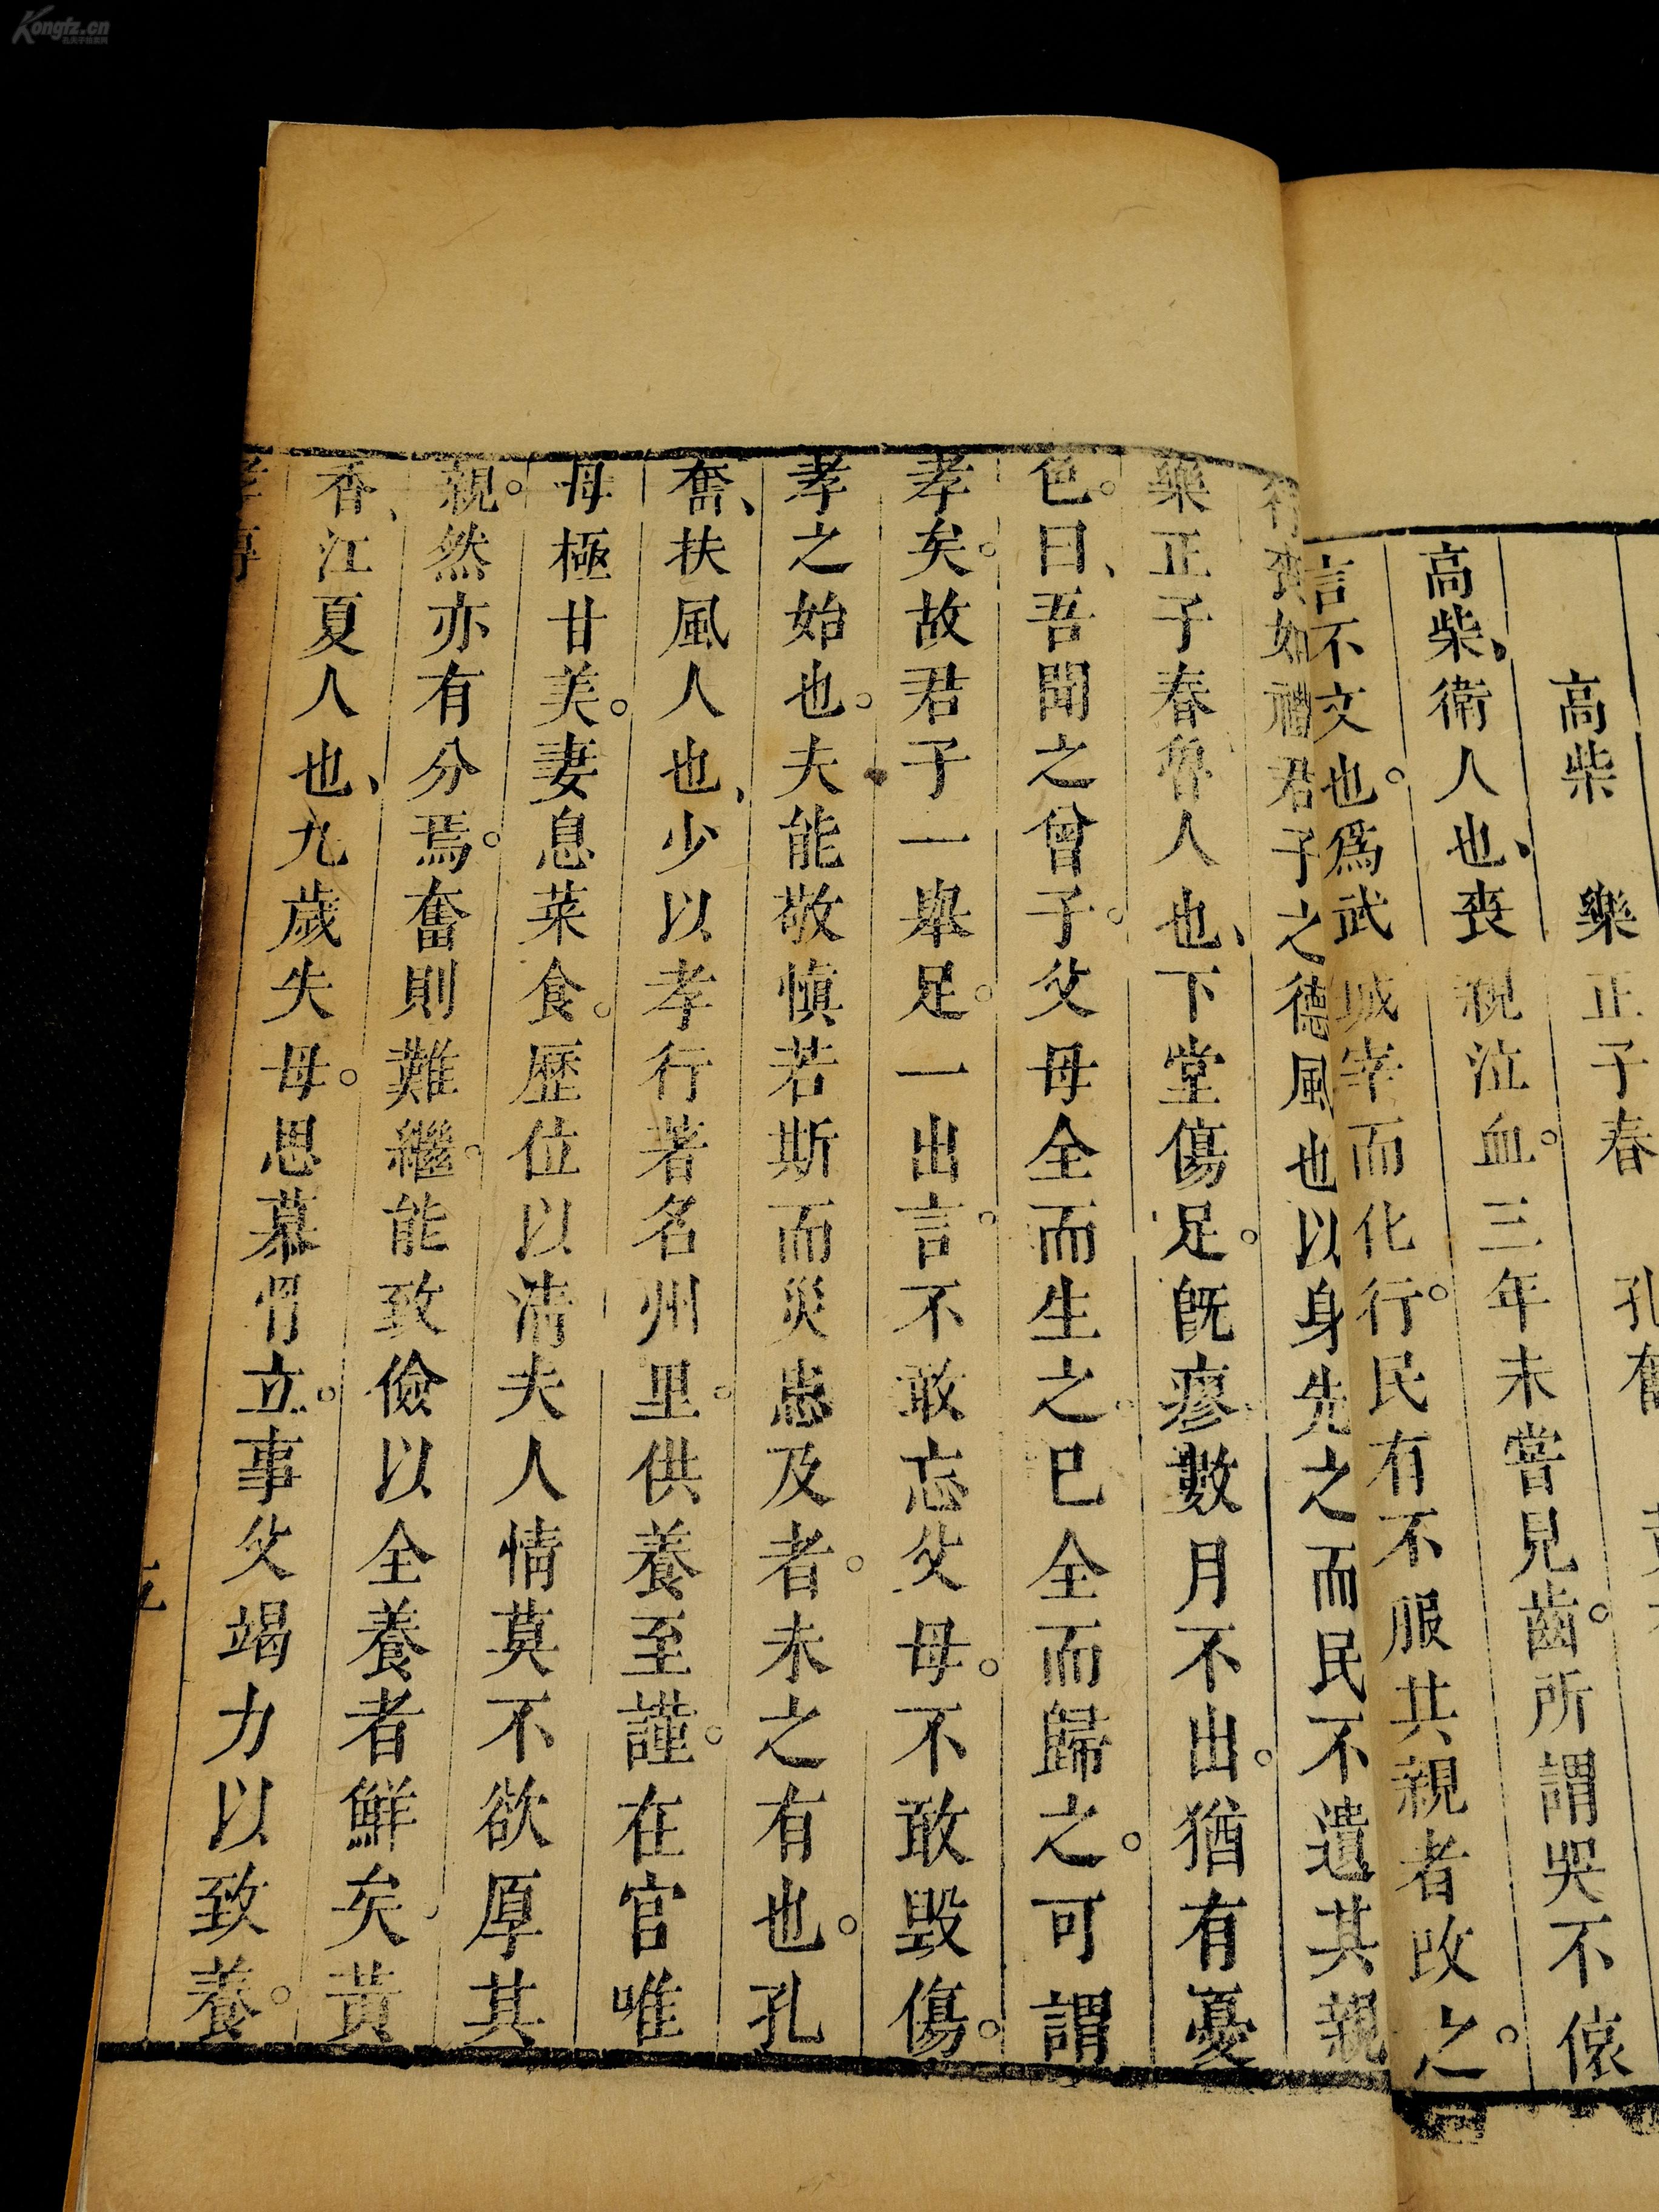 高柴 樂正子春 孔奮
高柴、衛人也、喪親泣血。三年未嘗見齒。所謂哭不偯
言不文也。爲武城宰而化行。民有不服共親者改之。
行喪如禮君子之德風也以身先之而民不遺其親
樂正子春魯人也、下堂傷足。旣瘳數月不出。猶有憂
色。曰、吾聞之曾子。父母全而生之。已全而歸之。可謂
孝矣。故君子一舉足。一出言。不敢忘父母。不敢毀傷。
孝之始也。夫能敬慎若斯而災患及者。未之有也。孔
奮、扶風人也、少以孝行著名州里。供養至謹。在官唯
母極甘美。妻息菜食。歷位以清夫人情莫不欲厚其
親。然亦有分焉。奮則難繼。能致儉以全養者鮮矣。黃
香、江夏人也、九歲失母。思慕骨立。事父竭力以致養。
孝傳
Kongfz.cn